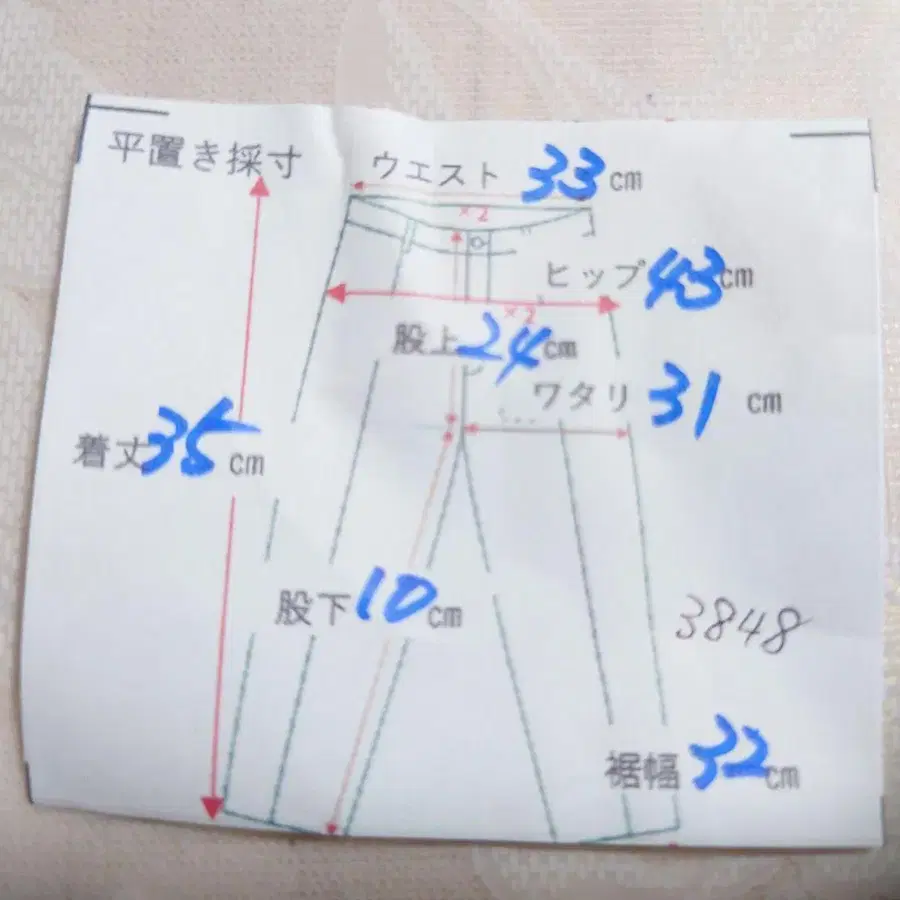 平置き採寸
ウエスト 33 cm
×2
ヒップ 43 cm
×2
股上 24 cm
ワタリ 31 cm
着丈 35 cm
股下 10 cm
3848
裾幅 32 cm